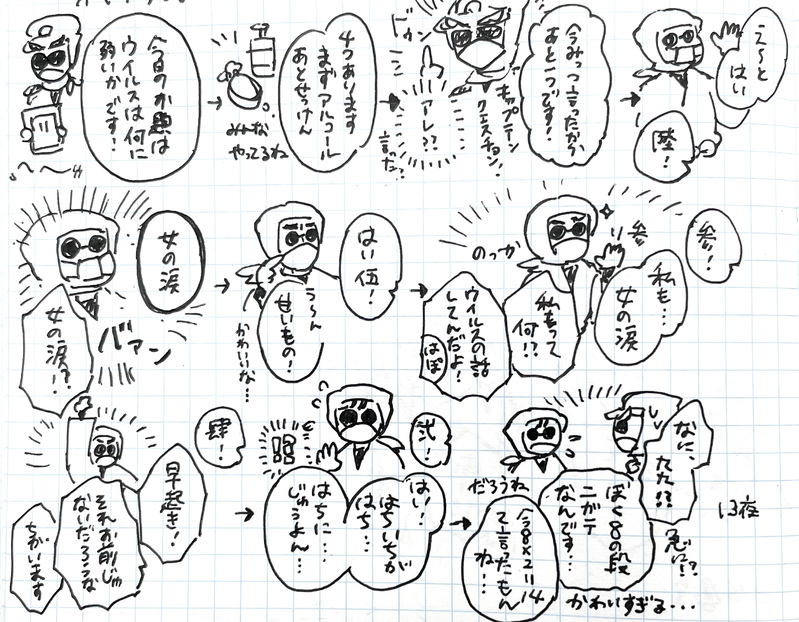 今日のお題は
ウイルスは何に
弱いかです!
4つあります
まずアルコール
あとせっけん
みんな
やってるね
今みっつ言ったから
あと一つです!
キャプテン
クエスチョン!
ドカン
アレ??
言った?
え〜と
はい
陸!
女の涙
バァン
女の涙!?
はい伍!
う〜ん
せいもの!
かわいいな…
参!
私も…
女の涙
のっか
り参
私もって
何!?
ウイルスの話
してんだよ!
肆!
早起き!
それお前じゃ
ないだろうな
ちがいます
弐!
はい!
はちいちが
はち…
はちに…
じゅうよん…
13夜
急に!?
ぼく8の段
ニガテ
なんです…
だろうね
今8×2=14
て言ったもん
ね…
かわいすぎる…